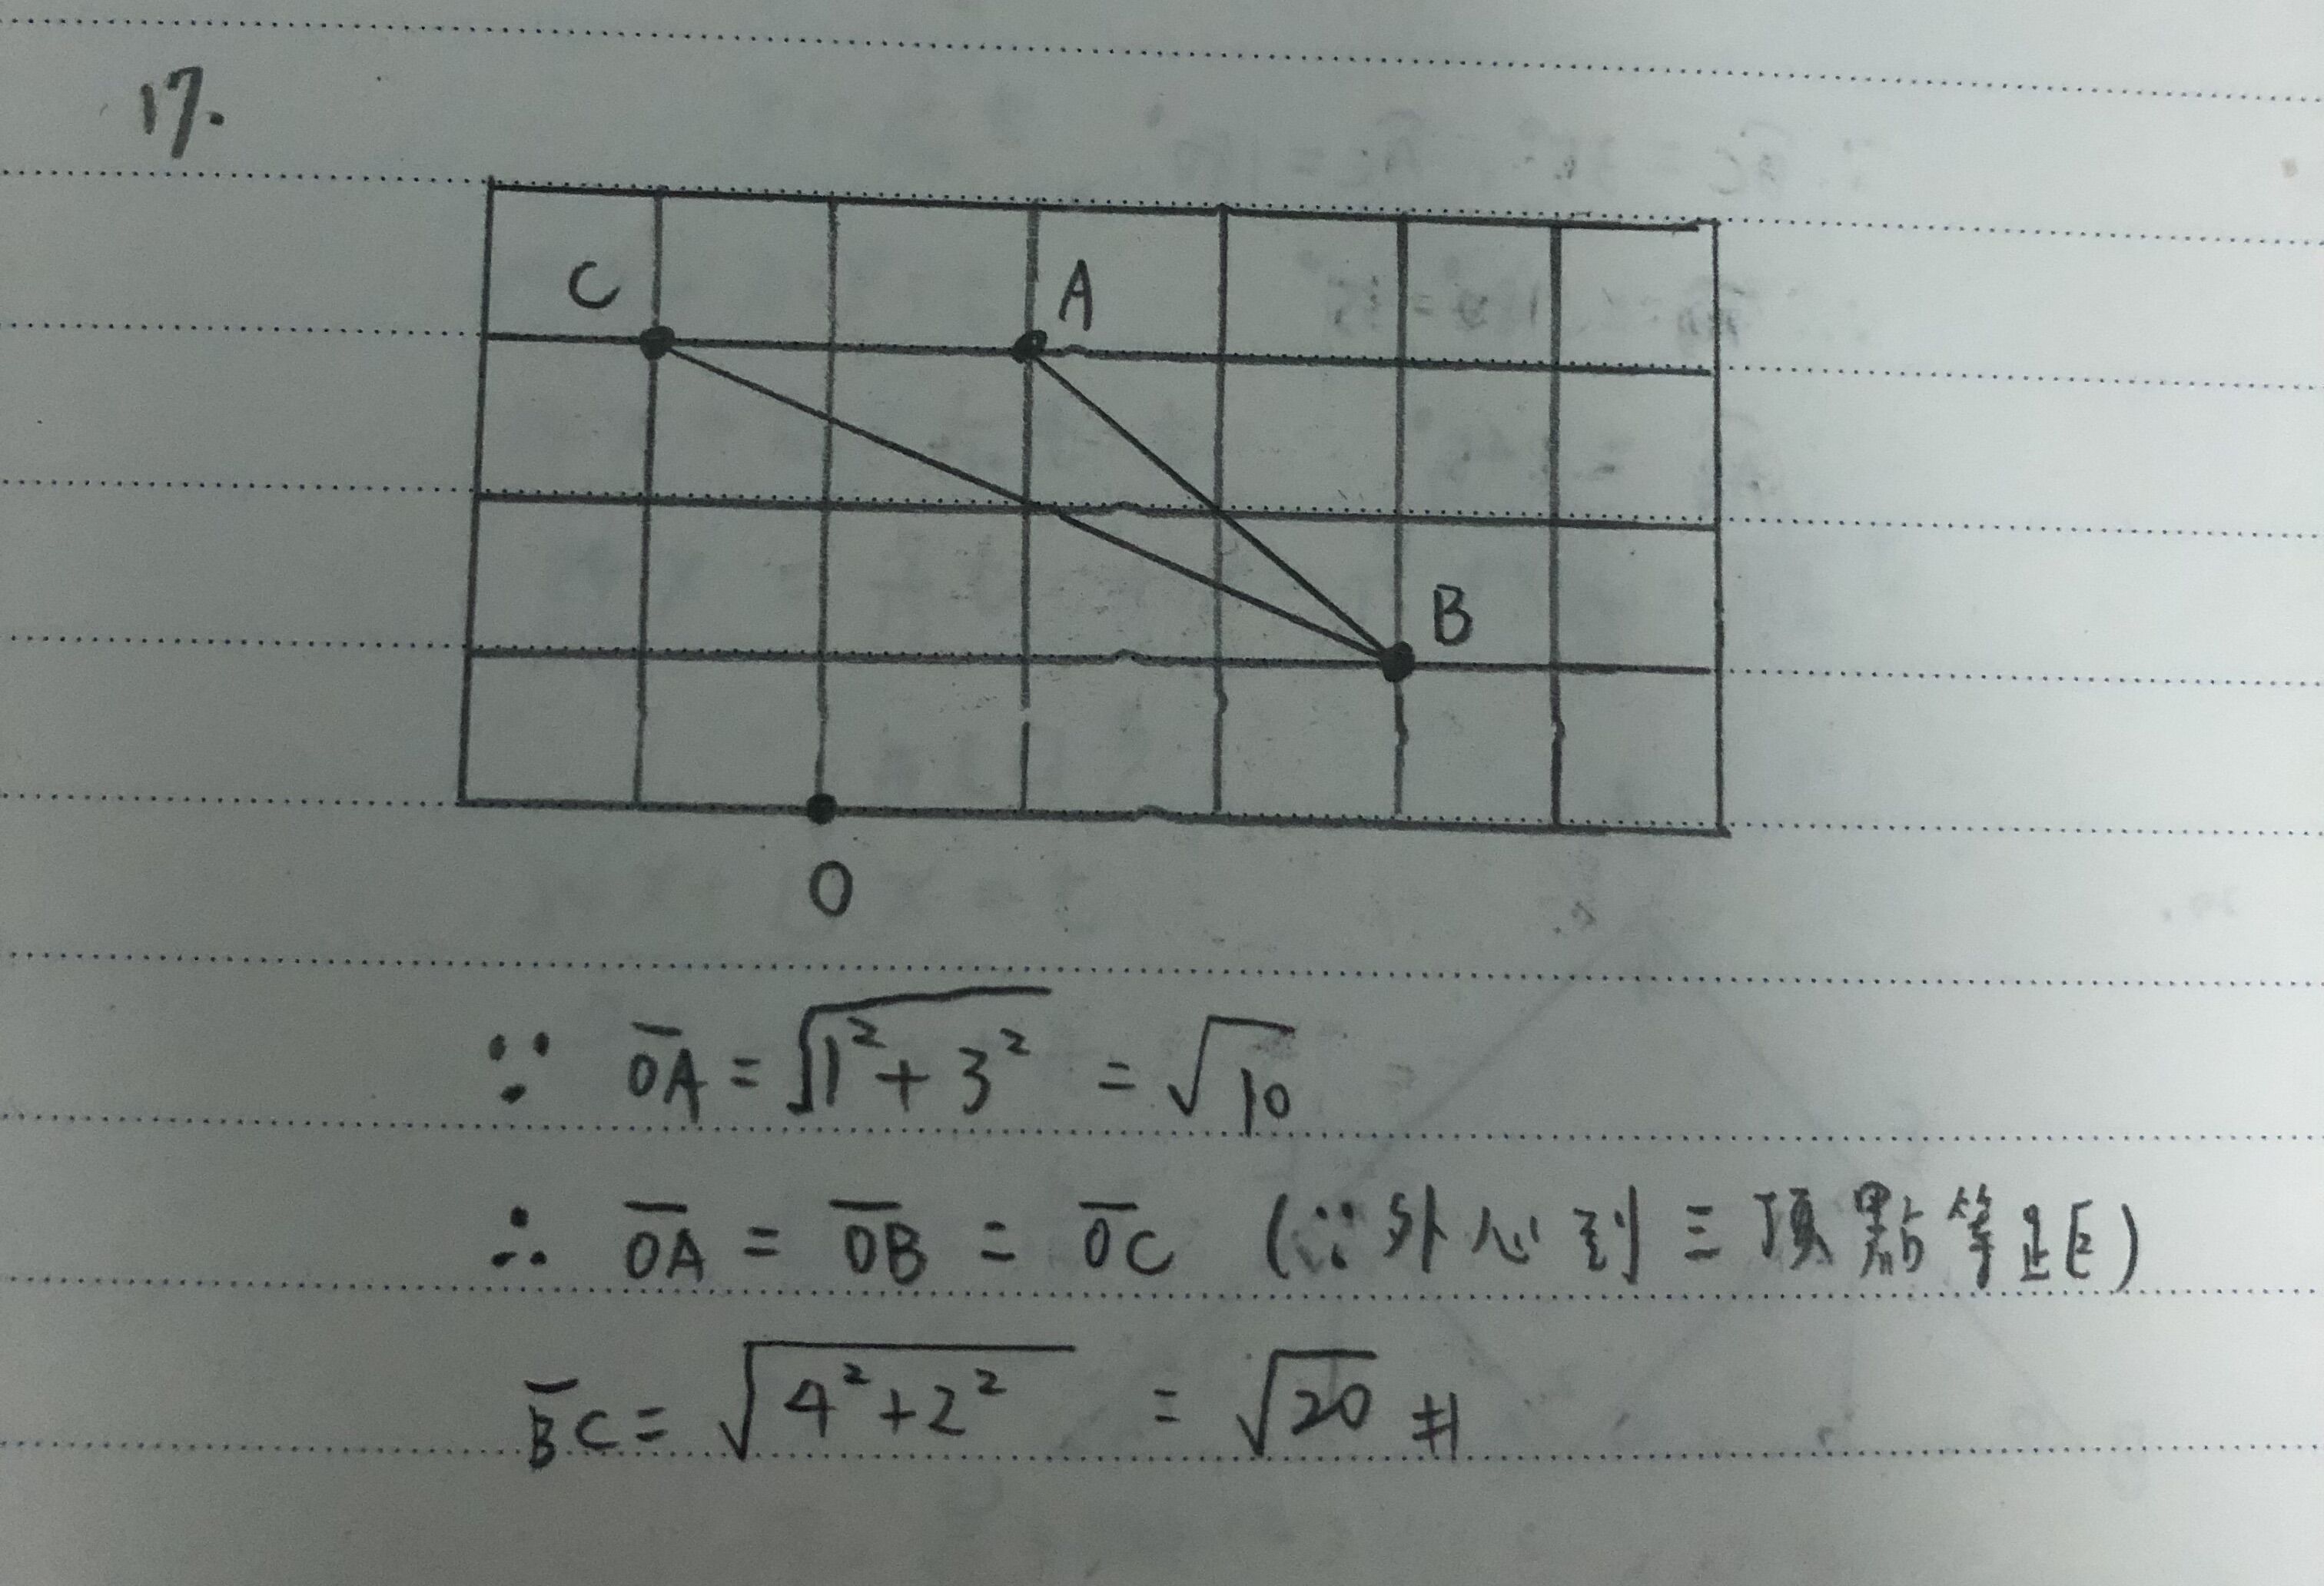 17.
C A
B
O
∵ \overline{OA} = √(1²+3²) = √10
∴ \overline{OA} = \overline{OB} = \overline{OC} (∵外心到三頂點等距)
\overline{BC} = √(4²+2²) = √20 #